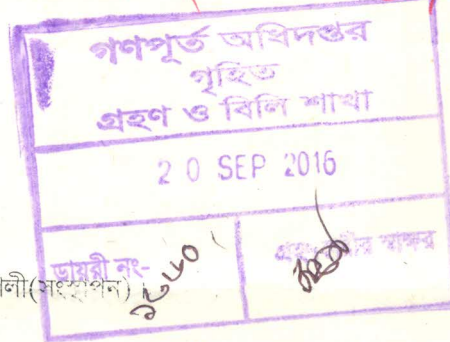 গণপূর্ত অধিদপ্তর
গৃহিত
গ্রহণ ও বিলি শাখা
20 SEP 2016
ডায়রী নং-
স্বাক্ষর
লী(সংস্থাপন)